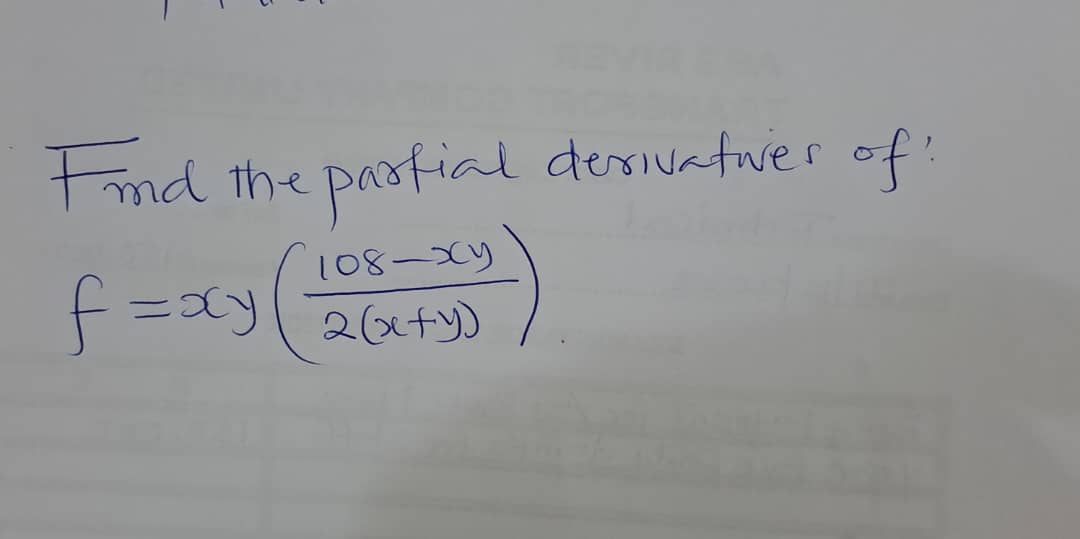 Find the partial derivatives of:
f = xy ( 108 - xy / 2(x+y) ).